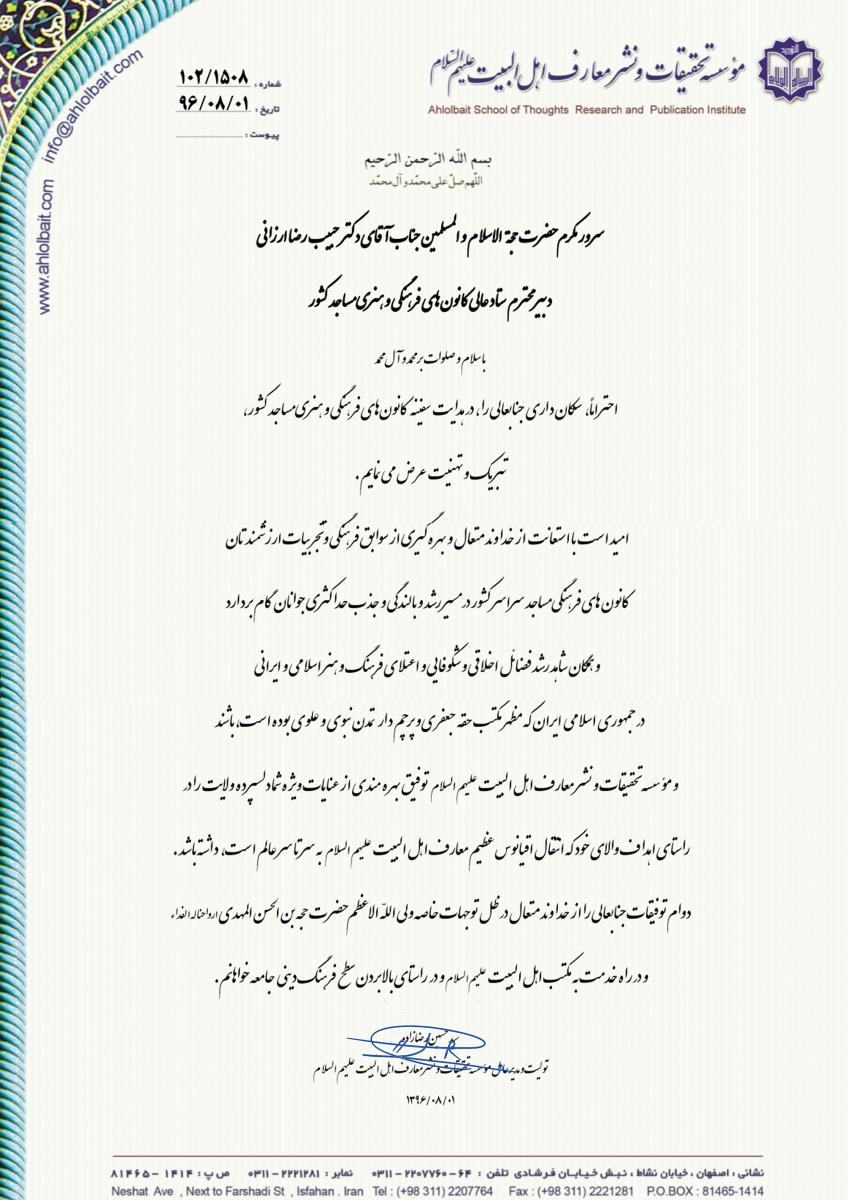 مؤسسه تحقیقات و نشر معارف اهل البیت علیهم السلام
Ahlolbait School of Thoughts Research and Publication Institute
شماره : ۱۰۲/۱۵۰۸
تاریخ : ۹۶/۰۸/۰۱
پیوست :
info@ahlolbait.com
www.ahlolbait.com
بسم الله الرّحمن الرّحیم
اللّهم صلّ علی محمّد و آل محمّد
سرور مکرم حضرت حجة الاسلام و المسلمین جناب آقای دکتر حبیب رضا ارزانی
دبیر محترم ستاد عالی کانون های فرهنگی و هنری مساجد کشور
با سلام و صلوات بر محمد و آل محمد
احتراماً، سکان داری جنابعالی را، در هدایت سفینه کانون های فرهنگی و هنری مساجد کشور،
تبریک و تهنیت عرض می نمایم .
امید است با استعانت از خداوند متعال و بهره گیری از سوابق فرهنگی و تجربیات ارزشمندتان
کانون های فرهنگی مساجد سراسر کشور در مسیر رشد و بالندگی و جذب حداکثری جوانان گام بردارد
و همگان شاهد رشد فضائل اخلاقی و شکوفایی و اعتلای فرهنگ و هنر اسلامی و ایرانی
در جمهوری اسلامی ایران که مظهر مکتب حقه جعفری و پرچم دار تمدن نبوی و علوی بوده است، باشند
و مؤسسه تحقیقات و نشر معارف اهل البیت علیهم السلام توفیق بهره مندی از عنایات ویژه شما دلسپرده ولایت را در
راستای اهداف والای خود که انتقال اقیانوس عظیم معارف اهل البیت علیهم السلام به سرتاسر عالم است، داشته باشد .
دوام توفیقات جنابعالی را از خداوند متعال در ظل توجهات خاصه ولی اللّه الاعظم حضرت حجه بن الحسن المهدی ارواحنا له الفداء
و در راه خدمت به مکتب اهل البیت علیهم السلام و در راستای بالا بردن سطح فرهنگ دینی جامعه خواهانم .
سید حسین رضازاده
تولیت و مدیر عامل مؤسسه تحقیقات و نشر معارف اهل البیت علیهم السلام
۱۳۹۶/۰۸/۰۱
نشانی : اصفهان ، خیابان نشاط ، نبـش خیـابـان فـرشـادی تلفن : ۶۴-۲۲۰۷۷۶۰-۰۳۱۱ نمابر : ۲۲۲۱۲۸۱-۰۳۱۱ ص پ : ۱۴۱۴-۸۱۴۶۵
Neshat Ave , Next to Farshadi St , Isfahan . Iran Tel : (+98 311) 2207764 Fax : (+98 311) 2221281 P.O.BOX : 81465-1414